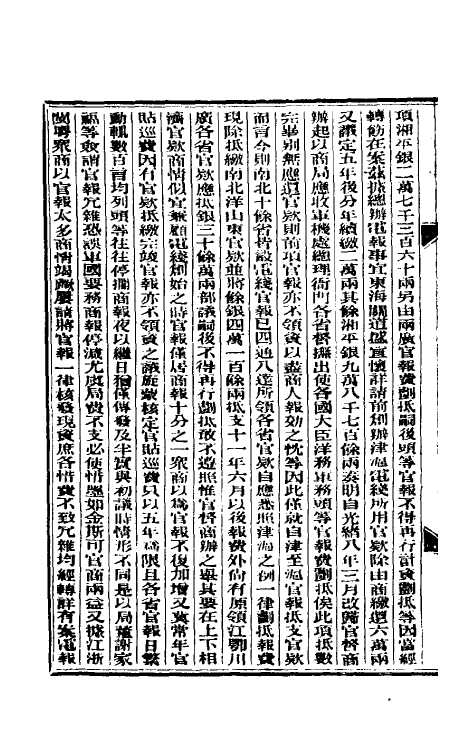 項湘平銀二萬七千三百六十兩另由兩廣官報費劃抵嗣後頭等官報不得再行計資劃抵等因當經
轉飭在案茲據總辦電報事宜東海關道盛宣懷詳請前創辦津滬電綫所用官欵除由商繳還六萬兩
又議定五年後分年續繳二萬兩其餘湘平銀九萬八千七百餘兩奏明自光緒八年三月改歸官督商
辦起以商局應收軍機處總理衙門各省督撫出使各國大臣洋務軍務頭等官報費劃抵俟此項抵數
完畢別無應還官欵則前項官報亦不領資以盡商人報効之忱等因此僅就自津至滬官報抵支官欵
而言今則南北十餘省皆設電綫官報已四通八達所領各省官欵自應悉照津滬之例一律劃抵報費
現除抵繳南北洋山東官欵並將餘銀四萬一百餘兩抵支十一年六月以後報費外尚有原領江鄂川
廣各省官欵應抵銀三十餘萬兩部議嗣後不得再行劃抵敢不遵照惟官督商辦之舉其要在上下相
濟官欵商情似宜兼顧電綫創始之時官報僅居商報十分之一衆商以爲官報不復加增又冀常年官
貼巡費因有官欵抵繳完竣官報亦不領資之議旋蒙核定官貼巡費只以五年爲限且各省官報日繁
動輒數百言均列頭等往往停擱商報夜以繼日猶僅傳發及半實與初議時情形不同是以局董謝家
福等敢請官報冗雜恐誤軍國要務商報停減尤虞局費不支必使情墨如金斯可官商兩益又據江浙
閩粤衆商以官報太多商情竭蹶屢請將官報一律核發現資庶各惜費不致冗雜均經轉詳有案電報